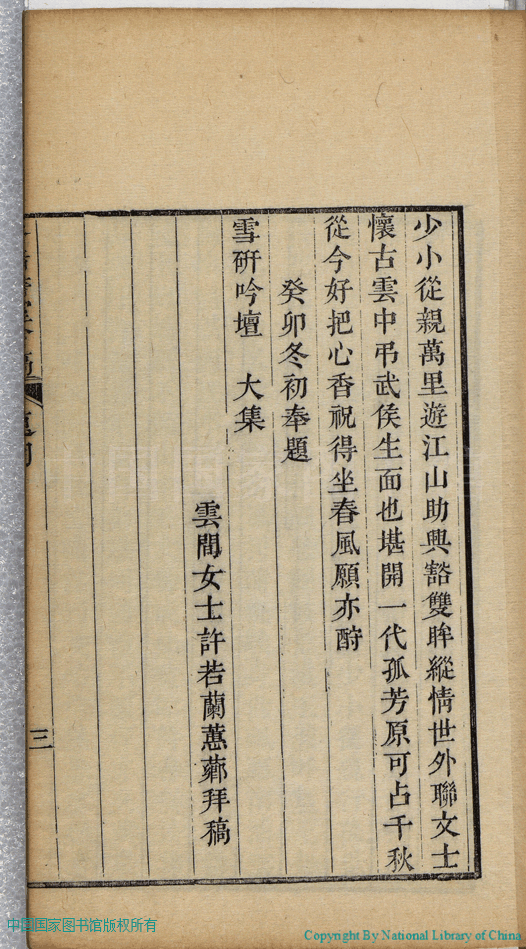 少小從親萬里遊江山助興豁雙眸縱情世外聯文士
懷古雲中弔武侯生面也堪開一代孤芳原可占千秋
從今好把心香祝得坐春風願亦酧
癸卯冬初奉題
雪硏吟壇　大集
雲間女士許若蘭蕙薌拜稿
三
中国国家图书馆版权所有
Copyright By National Library of China